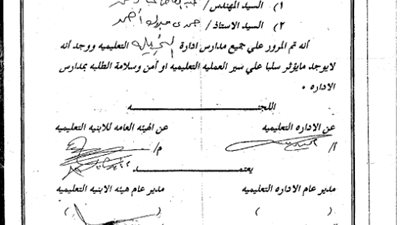 ١) السيد المهندس /
٢) السيد الاستاذ / حمدى مبروك احمد
أنه تم المرور علي جميع مدارس ادارة النخيله التعليميه ووجد أنه
لايوجد مايؤثر سلبا علي سير العمليه التعليميه او أمن وسلامة الطلبه بمدارس
الاداره .
اللجنه
عن الاداره التعليميه
عن الهيئه العامه للابنيه التعليميه
أ/
م/
يعتمد
مدير عام الاداره التعليميه
مدير عام هيئه الابنيه التعليميه
( )
( )